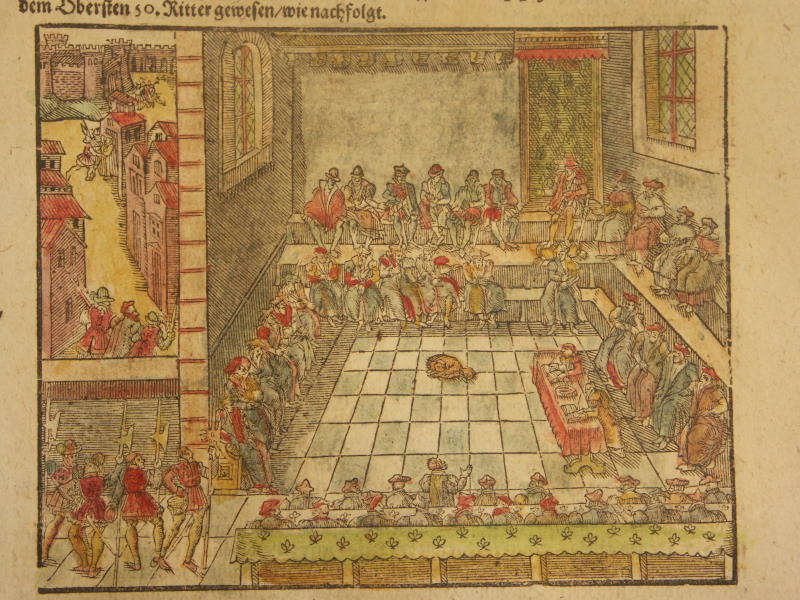 dem Obersten 50. Ritter gewesen/wie nachfolgt.